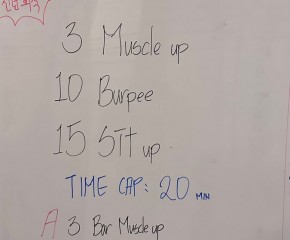 3 Muscle up
10 Burpee
15 Sit up
TIME CAP: 20 MIN
A 3 Bar Muscle up